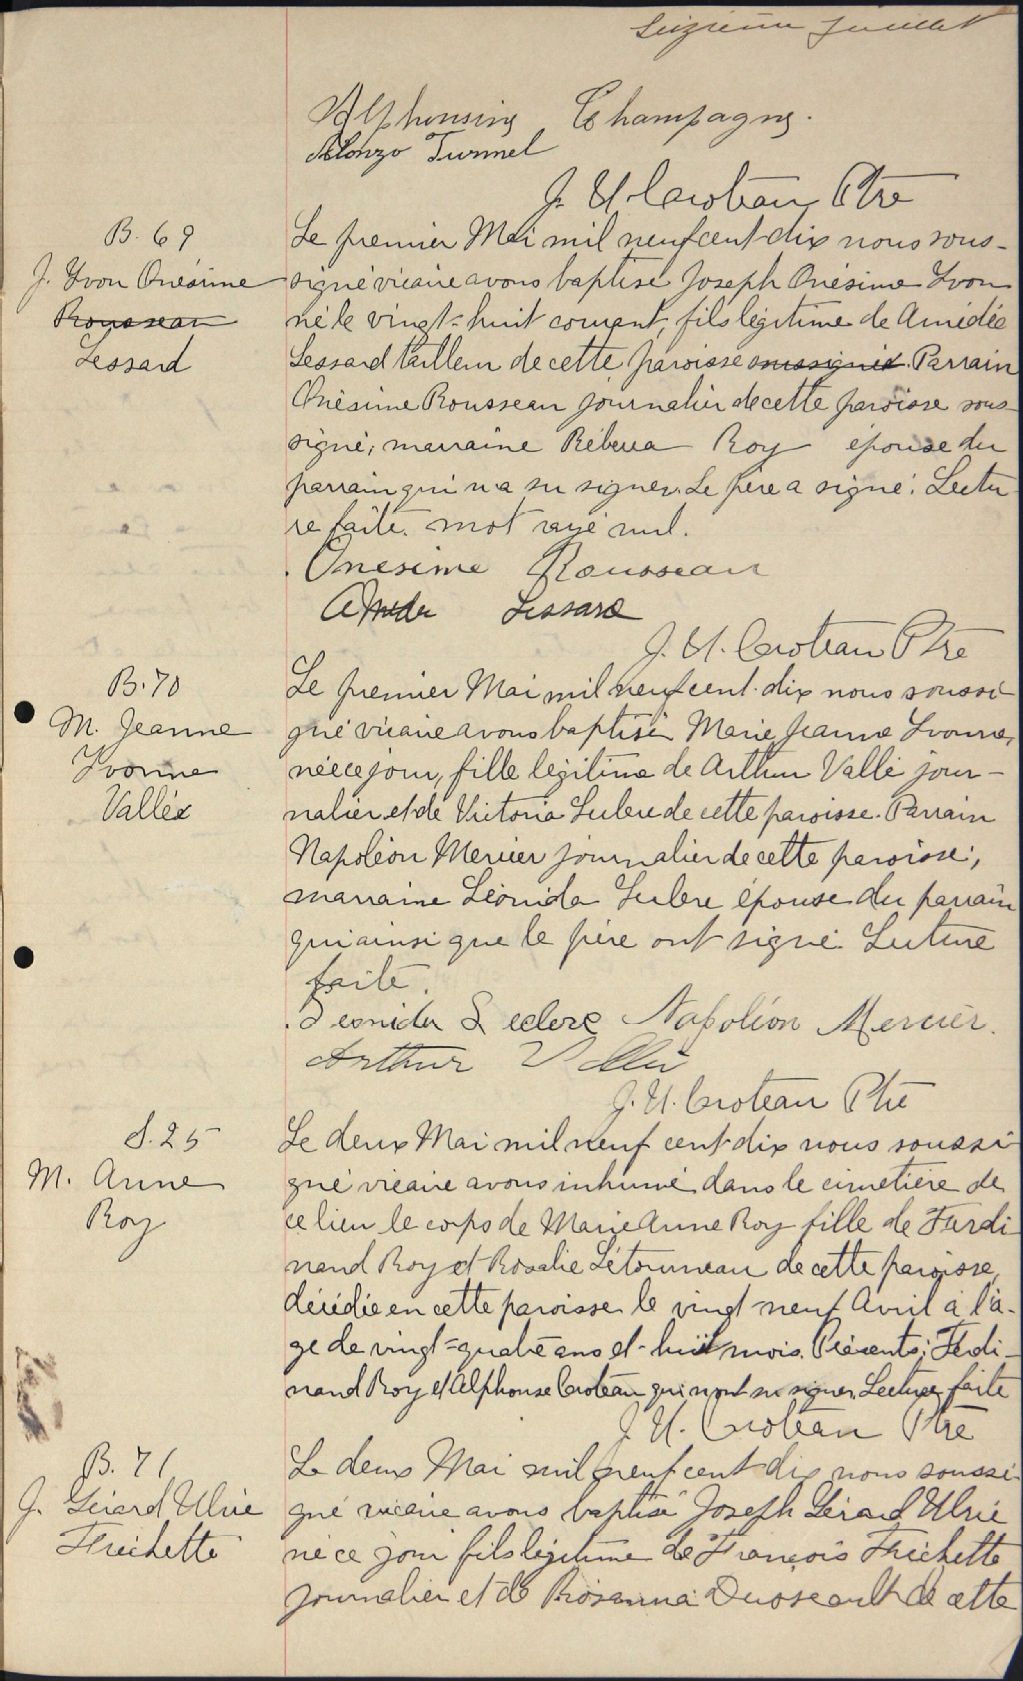 Seizième feuillet
Alphonsine Champagne.
Alonzo Turmel
J. U. Croteau Ptre
B. 69
J. Yvon Onésime
Rousseau
Lessard
Le premier Mai mil neuf cent-dix nous sous-
signé vicaire avons baptisé Joseph Onésime Yvon
né le vingt-huit courant, fils légitime de Amédée
Lessard tailleur de cette paroisse soussignés. Parrain
Onésime Rousseau journalier de cette paroisse sous-
signé; marraine Rébecca Roy épouse du
parrain qui n'a su signer. Le père a signé. Lectu
re faite. mot rayé nul.
Onesime Rousseau
Lessard
J. U. Croteau Ptre
B. 70
M. Jeanne
Yvonne
Vallée
Le premier Mai mil neuf cent-dix nous soussi-
gné vicaire avons baptisé Marie Jeanne Yvonne,
née ce jour, fille légitime de Arthur Vallé jour-
nalier et de Victoria Leclerc de cette paroisse. Parrain
Napoléon Mercier journalier de cette paroisse;
marraine Léonida Leclerc épouse du parrain
qui ainsi que le père ont signé. Lecture
faite.
Leonida Leclerc Napoléon Mercier.
Arthur Vallée
J. U. Croteau Ptre
S. 25
M. Anne
Roy
Le deux Mai mil neuf cent-dix nous soussi-
gné vicaire avons inhumé dans le cimetière de
ce lieu le corps de Marie Anne Roy fille de Ferdi
nand Roy et Rosalie Létourneau de cette paroisse,
décédée en cette paroisse le vingt neuf Avril à l'â-
ge de vingt-quatre ans et huit mois. Présents; Ferdi-
nand Roy et Alphonse Croteau qui n'ont su signer. Lecture faite
J. U. Croteau Ptre
B. 71
J. Gérard Ulric
Fréchette
Le deux Mai mil neuf cent-dix nous soussi-
gné vicaire avons baptisé Joseph Gérard Ulric
né ce jour fils légitime de François Fréchette
journalier et de Rosanna de cette